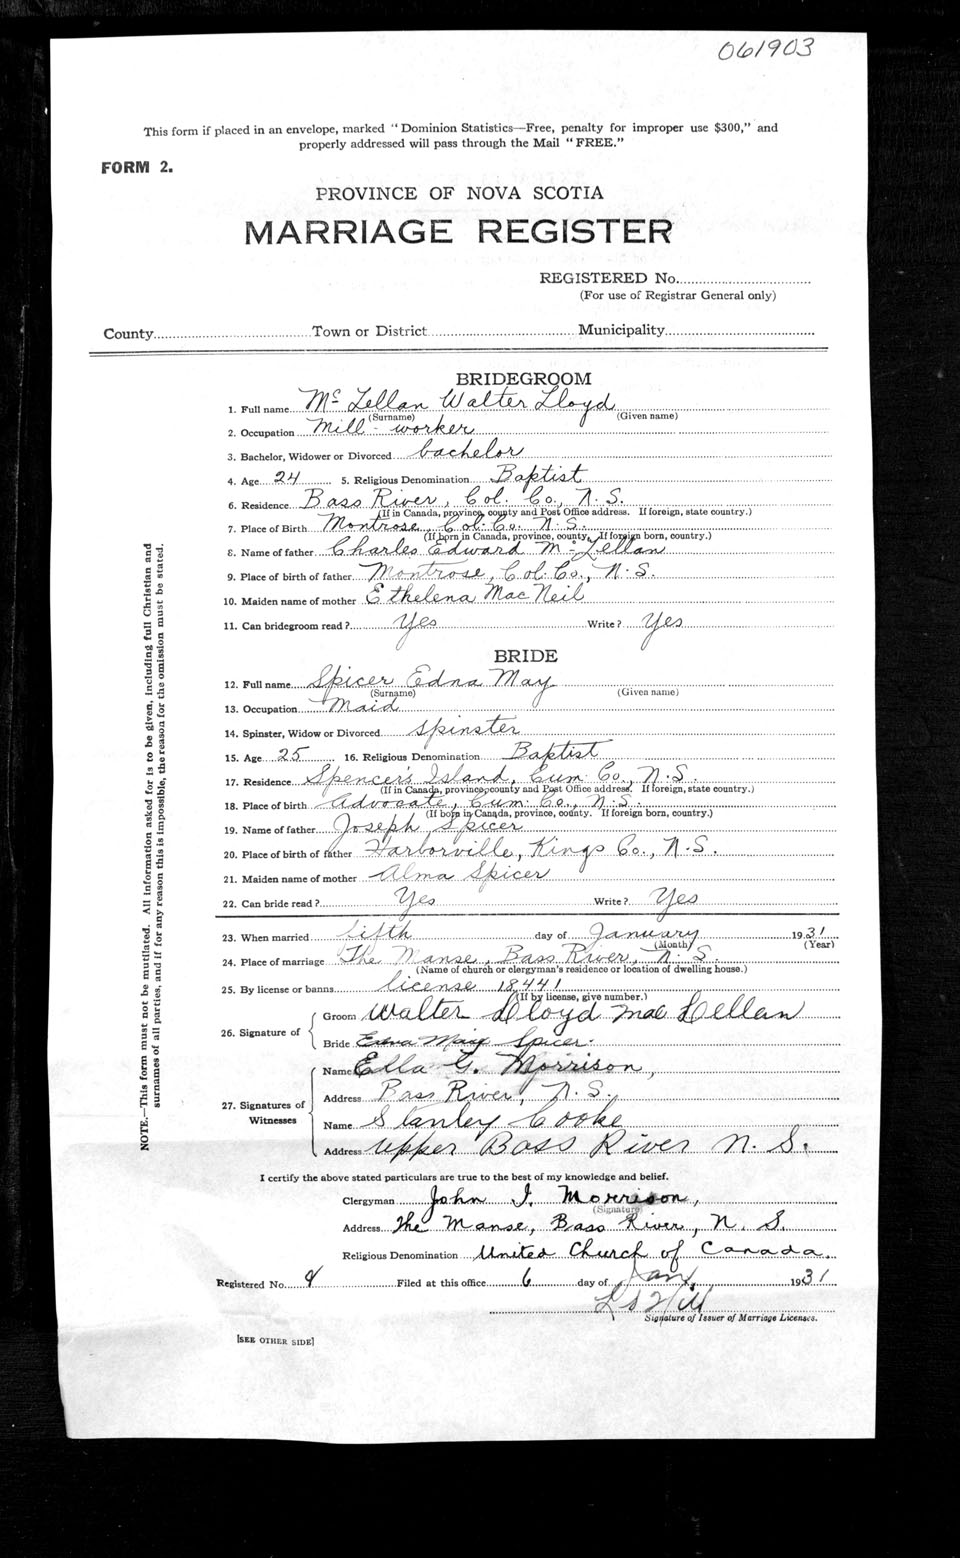 061903
This form if placed in an envelope, marked "Dominion Statistics—Free, penalty for improper use $300," and
properly addressed will pass through the Mail "FREE."
FORM 2.
PROVINCE OF NOVA SCOTIA
MARRIAGE REGISTER
REGISTERED No.
(For use of Registrar General only)
County Town or District Municipality
BRIDEGROOM
1. Full name Mc Lellan Walter Lloyd
(Surname) (Given name)
2. Occupation Mill-worker
3. Bachelor, Widower or Divorced bachelor
4. Age 24 5. Religious Denomination Baptist
6. Residence Bass River, Col. Co., N.S.
(If in Canada, province, county and Post Office address. If foreign, state country.)
7. Place of Birth Montrose, Col. Co. N.S.
(If born in Canada, province, county. If foreign born, country.)
8. Name of father Charles Edward Mc Lellan
9. Place of birth of father Montrose, Col. Co., N.S.
10. Maiden name of mother Ethelena MacNeil
11. Can bridegroom read? Yes Write? Yes
BRIDE
12. Full name Spicer Edna May
(Surname) (Given name)
13. Occupation Maid
14. Spinster, Widow or Divorced spinster
15. Age 25 16. Religious Denomination Baptist
17. Residence Spencer's Island, Cum. Co., N.S.
(If in Canada, province, county and Post Office address. If foreign, state country.)
18. Place of birth Advocate, Cum. Co., N.S.
(If born in Canada, province, county. If foreign born, country.)
19. Name of father Joseph Spicer
20. Place of birth of father Harborville, Kings Co., N.S.
21. Maiden name of mother Alma Spicer
22. Can bride read? Yes Write? Yes
23. When married fifth day of January 1931
(Month) (Year)
24. Place of marriage The Manse, Bass River, N.S.
(Name of church or clergyman's residence or location of dwelling house.)
25. By license or banns license 18441
(If by license, give number.)
26. Signature of
Groom Walter Lloyd MacLellan
Bride Edna May Spicer.
27. Signatures of Witnesses
Name Ella G. Morrison,
Address Bass River, N.S.
Name Stanley Cooke
Address Upper Bass River N.S.
I certify the above stated particulars are true to the best of my knowledge and belief.
Clergyman John I. Morrison,
(Signature)
Address The Manse, Bass River, N.S.
Religious Denomination United Church of Canada.
Registered No. Filed at this office 6 day of Jan. 1931
Hill
Signature of Issuer of Marriage Licenses.
[SEE OTHER SIDE]
NOTE.—This form must not be mutilated. All information asked for is to be given, including full Christian and
surnames of all parties, and if for any reason this is impossible, the reason for the omission must be stated.